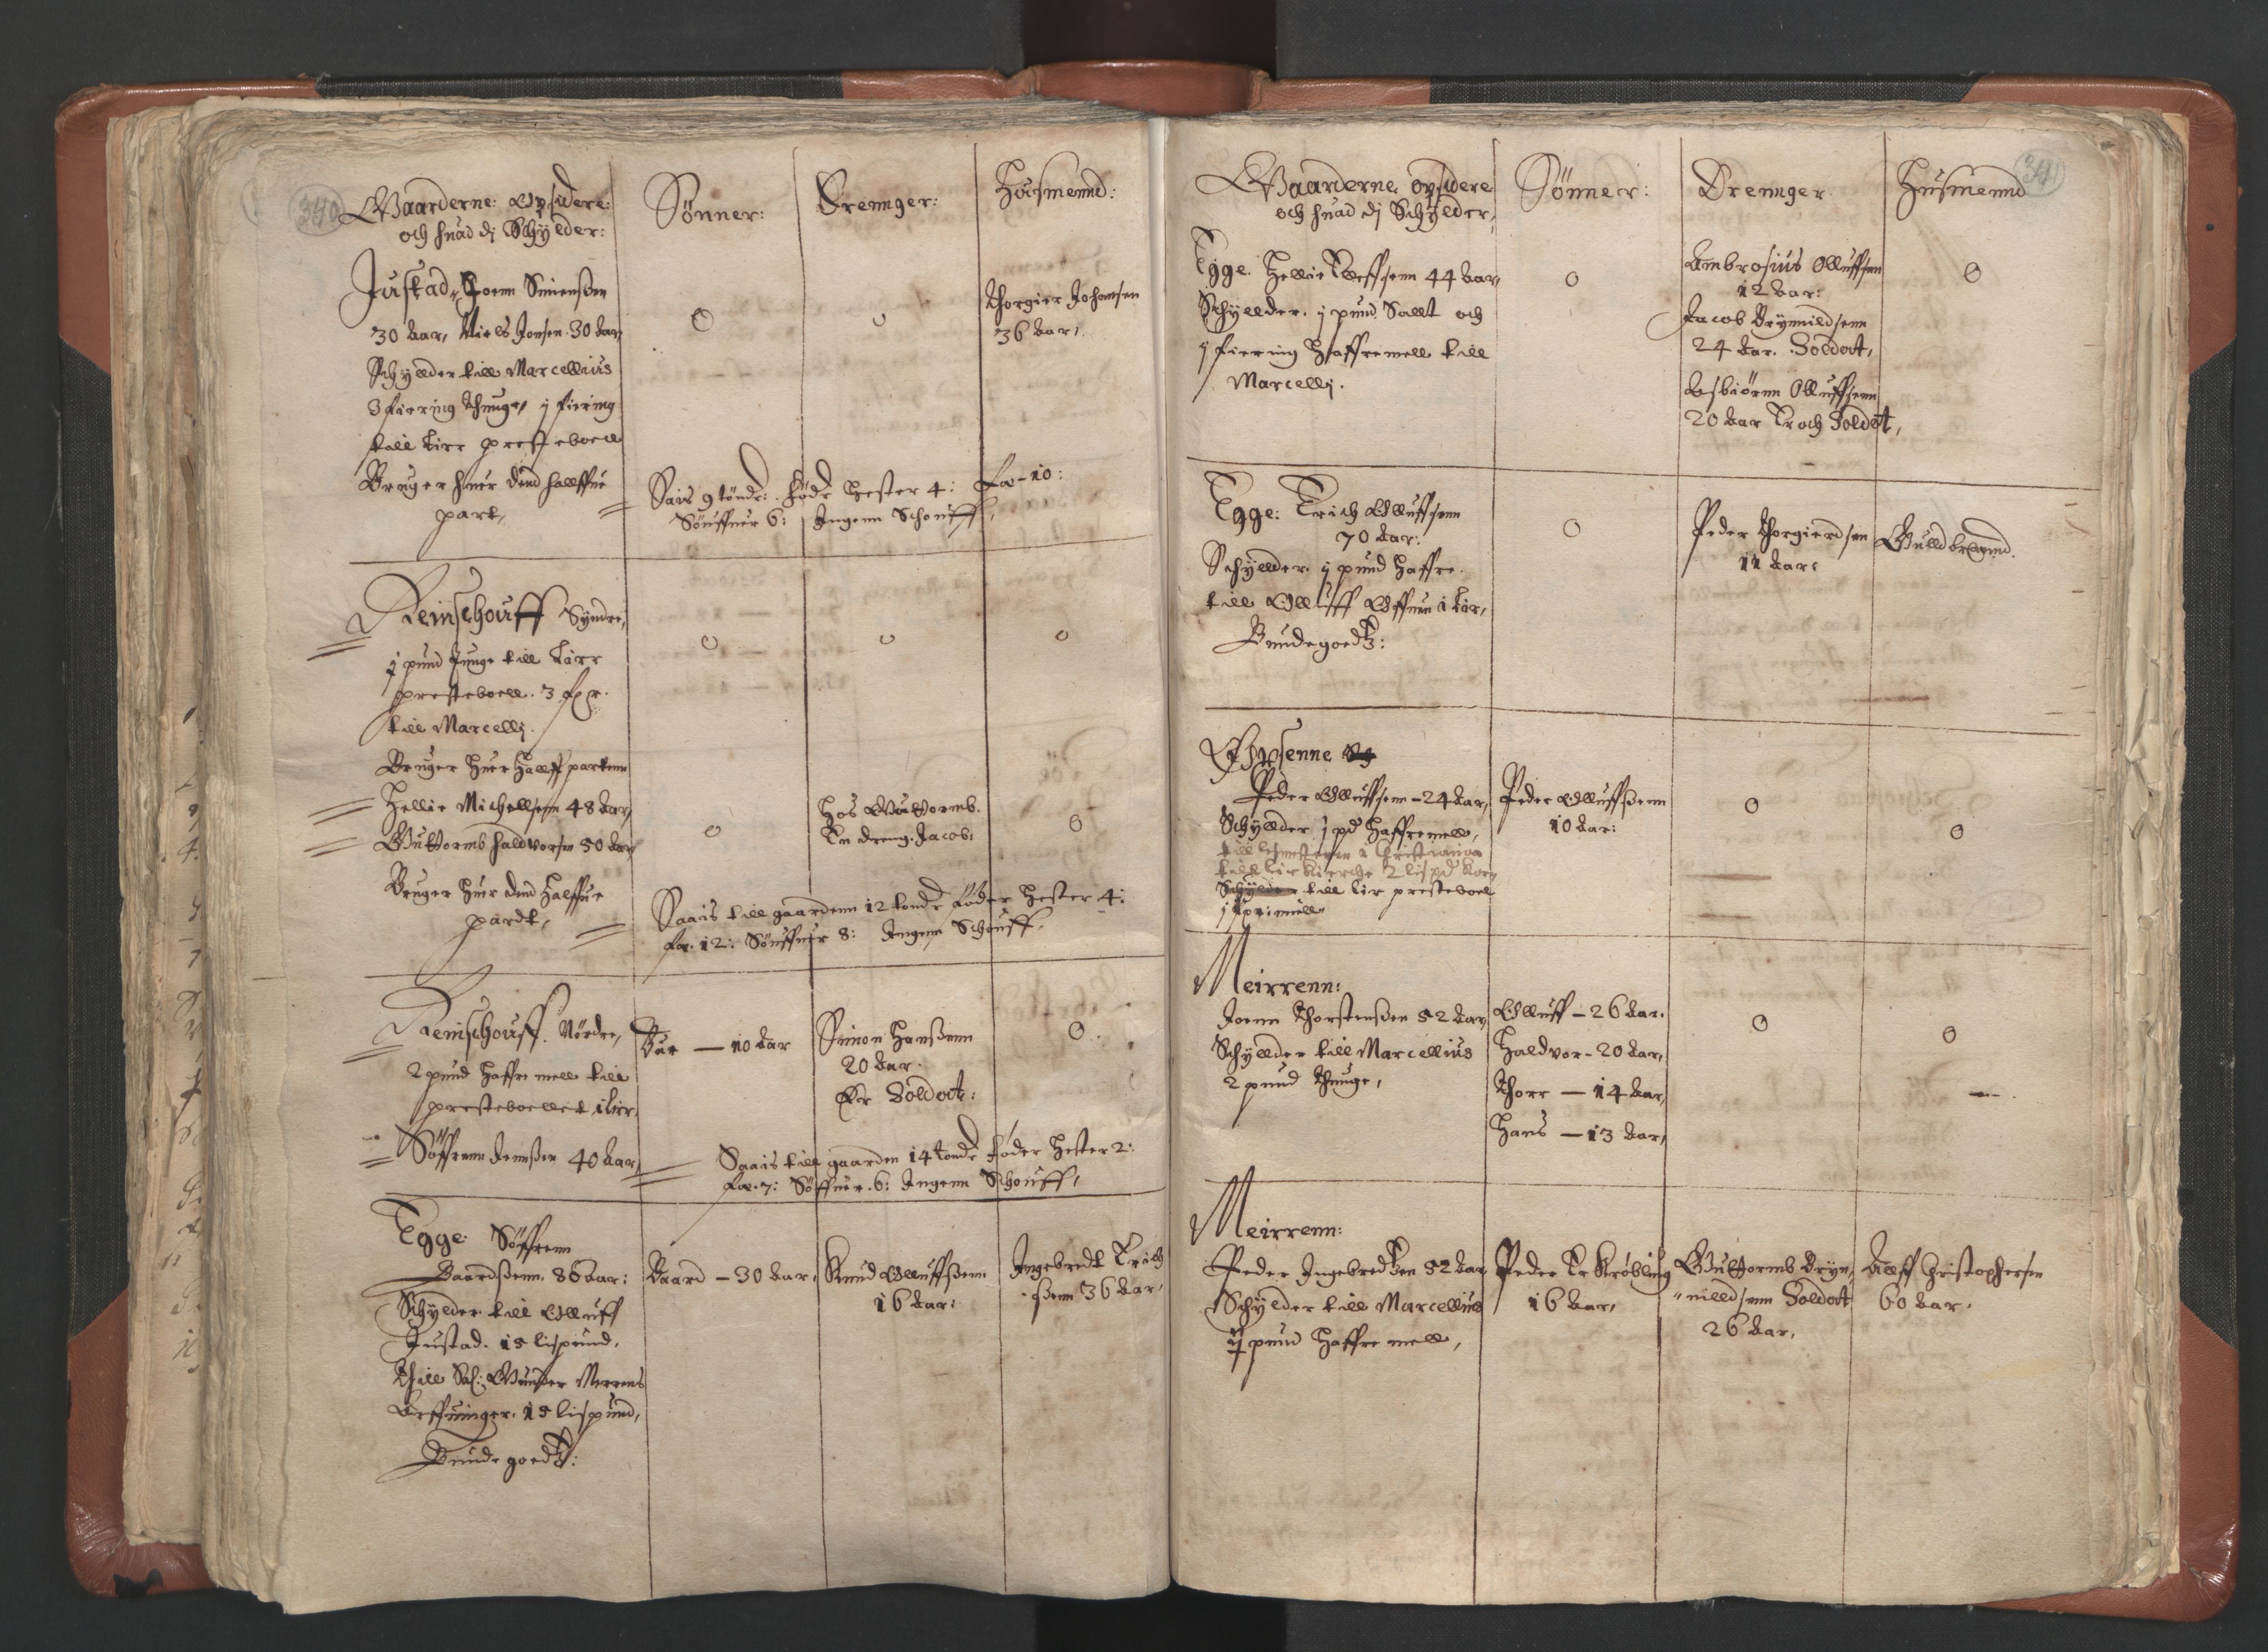 340
Gaarderne: Opsidere:
och huad di Schylder:
Sønner:
Drennger:
Huusmennd:
Justad, Joenn Simensßen
30 Aar, Niels Jonsen 30 Aar
Schyllder till Marcellius
3 fiering thunge, j fiering
till Lier presteboell
Bruger huer dend hallffue
part,
o
o
Thorgier Johansen
36 Aar,
Saais 9 tønder: føder Hester 4: Fæ-10:
Souffuer 6: Ingenn Schouff,
Reinschouff Syndre,
j pund tunge till Lier
presteboell. 3
till Marcellj.
Bruger huer Hallff partenn
Hellie Michellsenn 48 Aar,
Guttormb Haldvorsen 50 Aar
Bruger huer dend Halffue
pardt,
o
o
o
o
Hos Guttormb.
En dreng Jacob,
o
Saais till gaardenn 12 tønde føder Hester 4:
Fæ. 12: Souffuer 8: Ingenn Schouff,
Reinschouff. Nordre,
2 pund Haffre mell till
presteboellet i Lier
Søffrenn Jennsßen 40 Aar,
— 10 Aar
Simon Hanßenn
20 Aar.
Er Soldat:
o
Saais till gaarden 14 tønde føder Hester 2:
Fæ. 7: Søffuer. 6: Ingenn Schouff,
Egge Søffrenn
Baardßenn. 86 Aar:
Schylder till Olluff
Justad. 15 lispund.
Thill Sal: Gunder Merrens
Arffuinger. 15 lispund,
Bunde goedtz:
Baard — 30 Aar,
Knud Olluffßenn
16 Aar:
Ingebredt Erich
ßenn 36 Aar,
341
Gaarderne, opsidere
och huad di Schylder,
Sønner:
Drennger.
Husmennd
Egge. Hellie Olleffsenn 44 Aar,
Schyllder. j pund Sallt och
j fiering Haffremell till
Marcellj.
o
Ambrosius Olluffsen
12 Aar:
Jacob Brynnildsenn
24 Aar. Soldat,
Asbiørnn Olluffsenn
20 Aar Er och Soldat,
o
Egge: Erich Olluffsenn
70 Aar:
Schyllder. j pund Haffre.
till Olluff Offnn i Lier,
Bundegoedtz:
o
Peder Thorgierdsen
11 Aar:
Gulldbrannd.
Opsenne
Peder Olluffsenn - 24 Aar,
Schyllder j pd Haffremell,
till Lir kierche 2 lispd korn
till Lir presteboel
Peder Olluffßenn
10 Aar:
o
o
Meirrenn:
Joenn Thorstenßen 52 Aar,
Schyllder till Marcellius
2 pund thunge,
Olluff - 26 Aar.
Haldvor - 20 Aar,
Thore — 14 Aar,
Hans — 13 Aar,
o
o
Meirrenn:
Peder Ingebredtzen 52 Aar
Schyllder till Marcellius
ij pund Haffre mell,
Peder Er Krøbling
16 Aar,
Guttormb Bryn,
nilldsenn Soldat
26 Aar,
Alleff Christophersen
60 Aar.